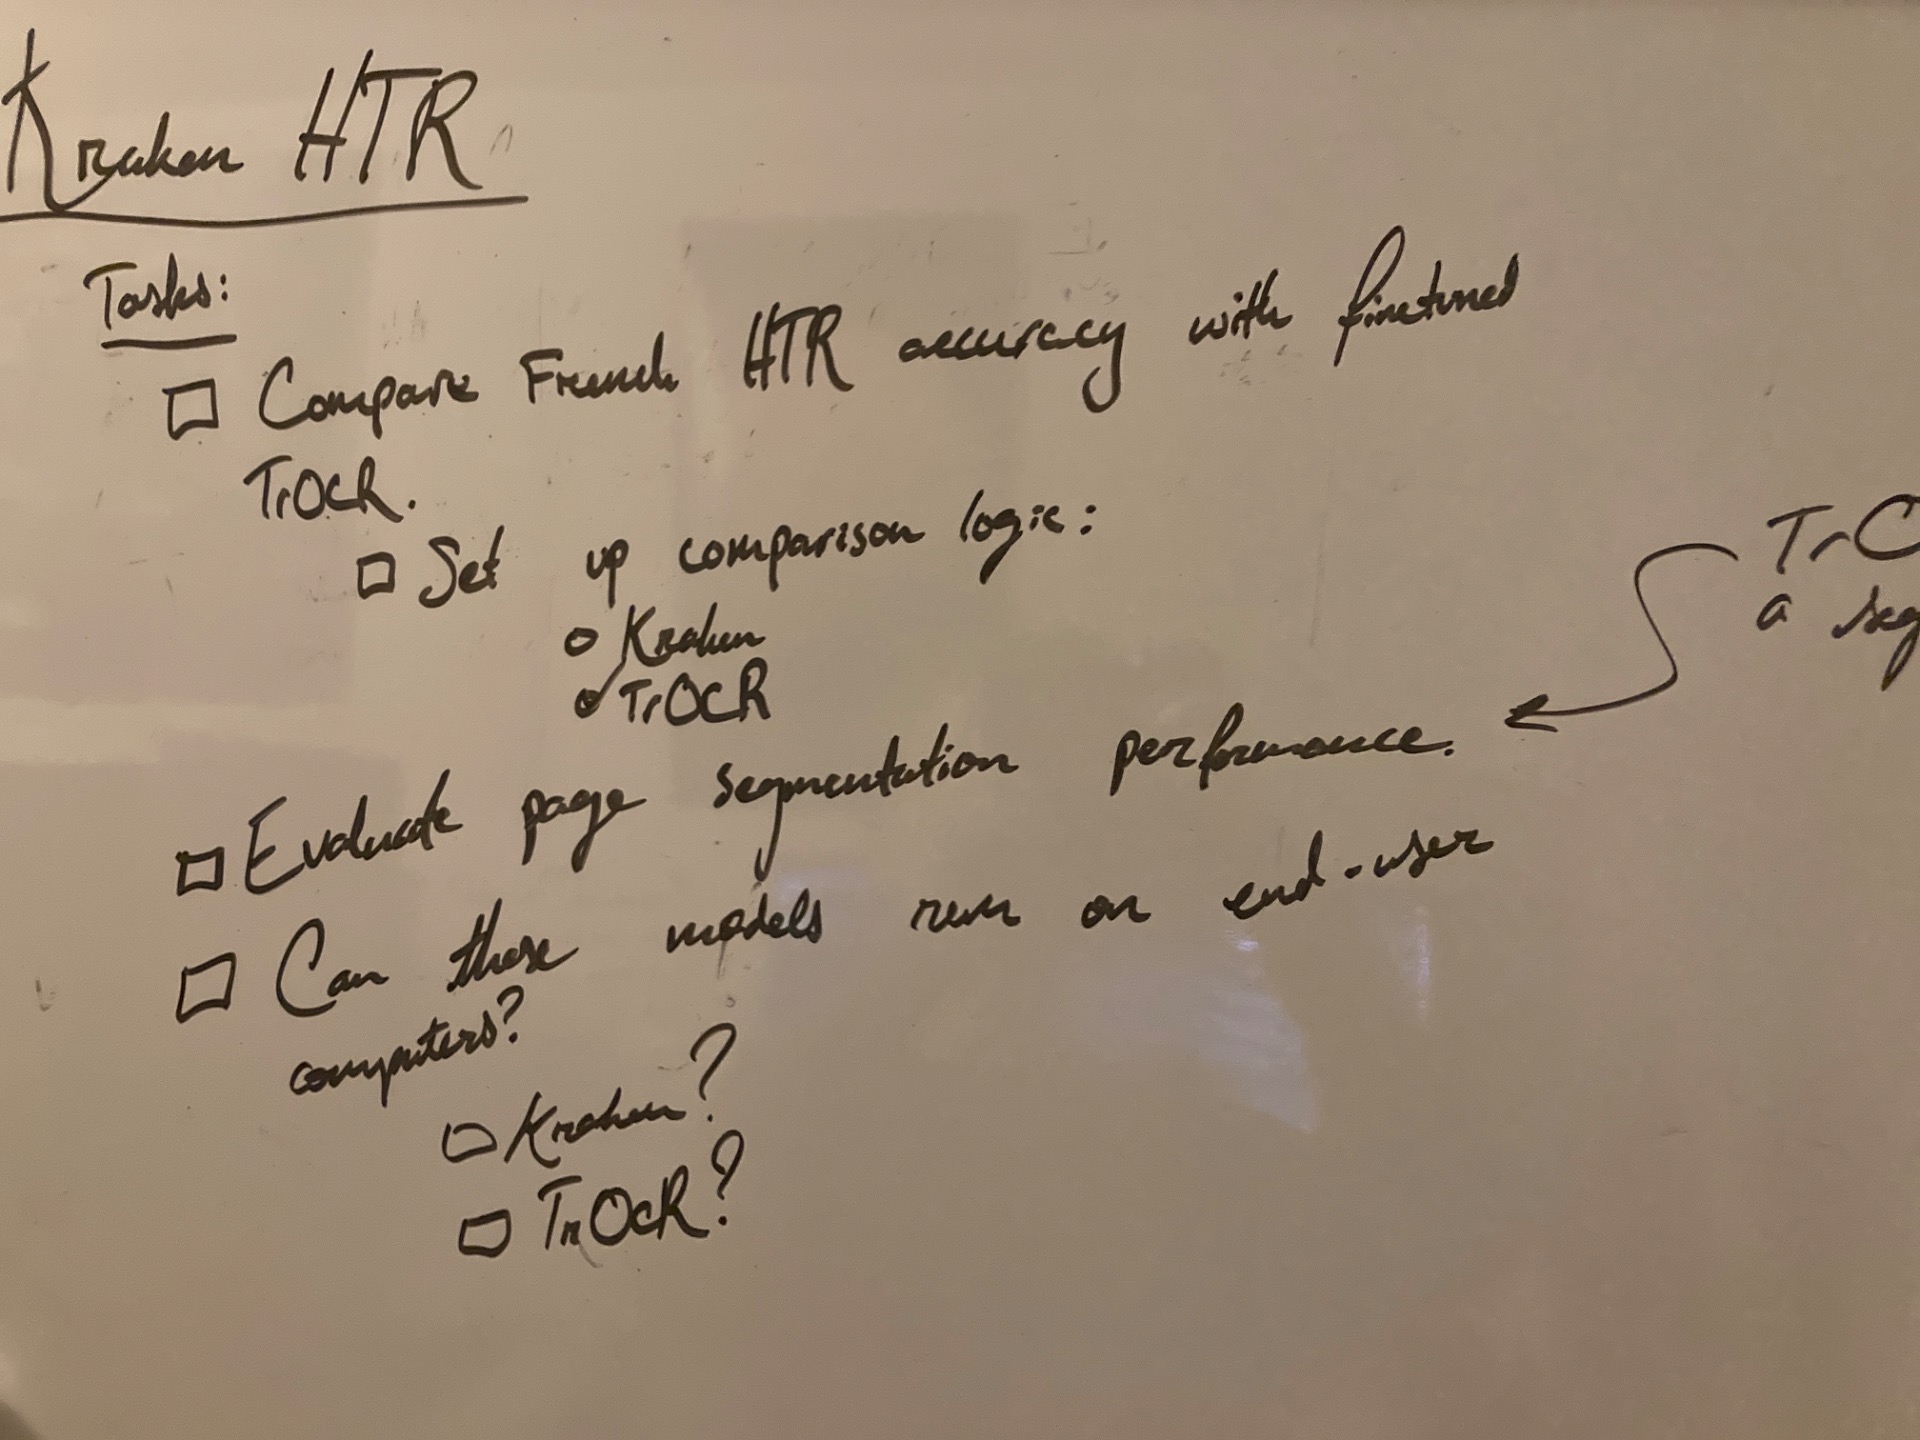 Kraken HTR
Tasks:
Compare French HTR accuracy with finetuned
TrOCR.
Set up comparison logic:
Kraken
TrOCR
TrO
a seg
Evaluate page segmentation performance.
Can these models run on end-user
computers?
Kraken?
TrOCR?